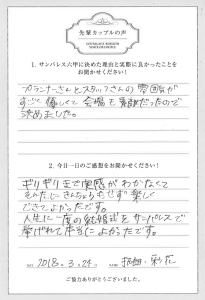 先輩カップルの声
1. サンパレス六甲に決めた理由と実際に良かったことを
お聞かせください！
プランナーさんとスタッフさんの雰囲気が
すごく優しくて会場も素敵だったので
決めました。
2. 今日一日のご感想をお聞かせください！
ギリギリまで実感がわかなくて
できてよかったです。
人生に一度の結婚式をサンパレスで
挙げれて本当によかったです。
DATE 2018.3.24 NAME
ご協力ありがとうございました。